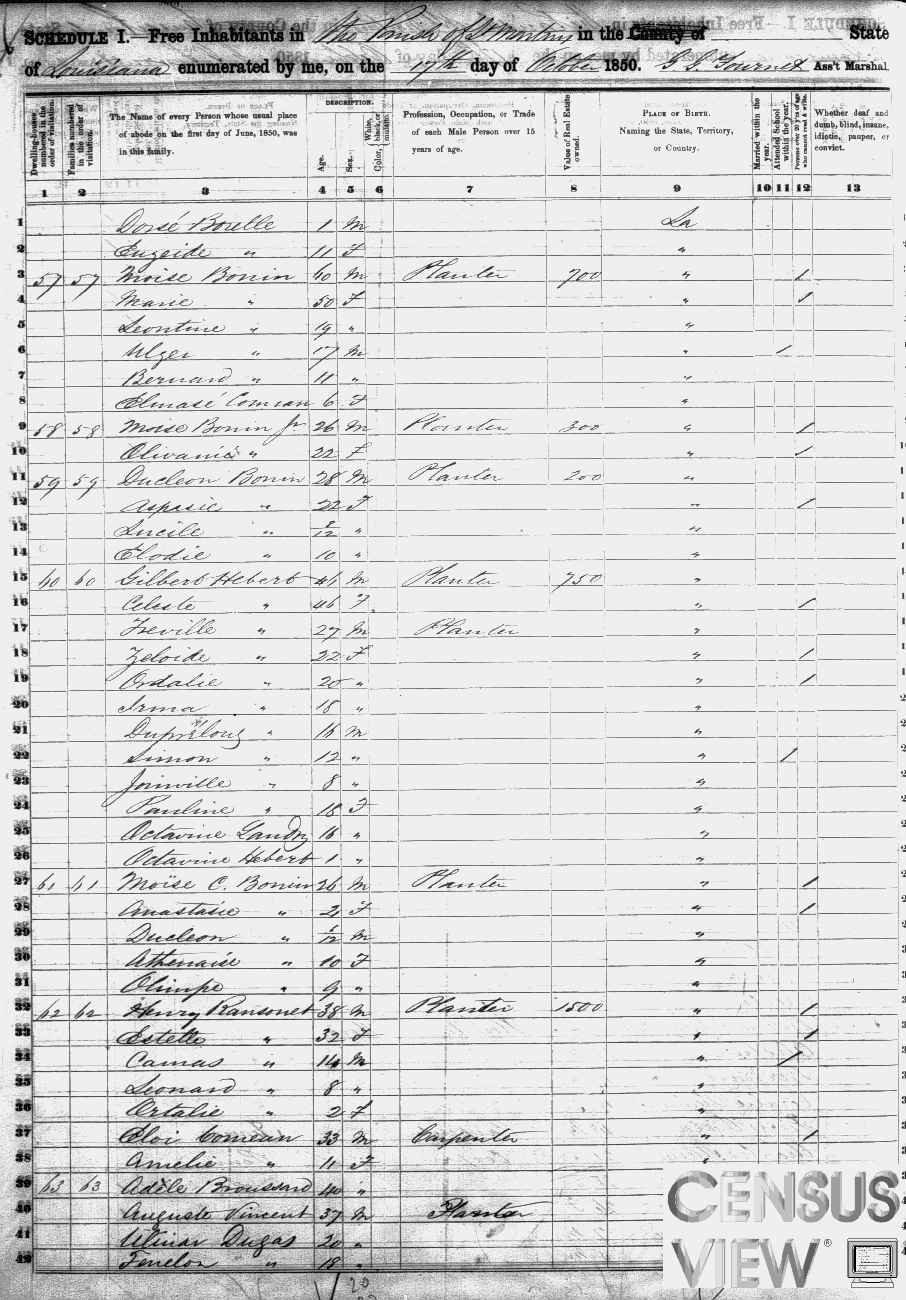 SCHEDULE I.—Free Inhabitants in the Parish of St Martins in the County of State
of Louisiana enumerated by me, on the 17th day of October 1850. Ass't Marshal
Dwelling-houses numbered in the order of visitation.
Families numbered in the order of visitation.
The Name of every Person whose usual place of abode on the first day of June, 1850, was in this family.
DESCRIPTION.
Age.
Sex.
Color, White, black, or mulatto.
Profession, Occupation, or Trade of each Male Person over 15 years of age.
Value of Real Estate owned.
PLACE OF BIRTH. Naming the State, Territory, or Country.
Married within the year.
Attended School within the year.
Persons over 20 y'rs of age who cannot read & write.
Whether deaf and dumb, blind, insane, idiotic, pauper, or convict.
1 2 3 4 5 6 7 8 9 10 11 12 13
1 Dorsé Borelle 1 M La
2 Euzeide " 11 F "
3 57 57 Moise Bonin 60 M Planter 700 " /
4 Marie " 50 F " /
5 Leontine " 19 " "
6 Ulger " 17 M " /
7 Bernard " 11 " "
8 Elmasé 6 F "
9 58 58 Moise Bonin Jr 26 M Planter 300 " /
10 " 22 F " /
11 59 59 Ducleon Bonin 28 M Planter 200 "
12 Aspasie " 22 F " /
13 Lucile " "  "
14 Elodie " 10 " "
15 60 60 Gilbert Hebert 46 M Planter 750 "
16 Celeste " 46 F " /
17 Treville " 27 M Planter "
18 Zeloide " 22 F " /
19 Ordalie " 20 " " /
20 Irma " 18 " "
21 " 16 M "
22 Simon " 12 " " /
23 Joinville " 8 " "
24 Pauline " 18 F "
25 Octavine Landry 16 " "
26 Octavine Hebert 1 " "
27 61 61 Moïse C. Bonin 26 M Planter " /
28 Anastasie " 21 F " /
29 Ducleon " M "
30 Athenaise " 10 F "
31 Olimpe " 9 " "
32 62 62 Henry Ransonet 38 M Planter 1500 " /
33 Estelle " 32 F " /
34 Camas " 14 M " /
35 Leonard " 8 " "
36 Ortalie " 2 F "
37 Eloi Comeau 33 M Carpenter " /
38 Amelie " 11 F "
39 63 63 Adèle Broussard 40 "
40 Auguste Vincent 37 M Planter
41 Ulinar Dugas 20 "
42 Fenelon " 18 "
20
CENSUS
VIEW®